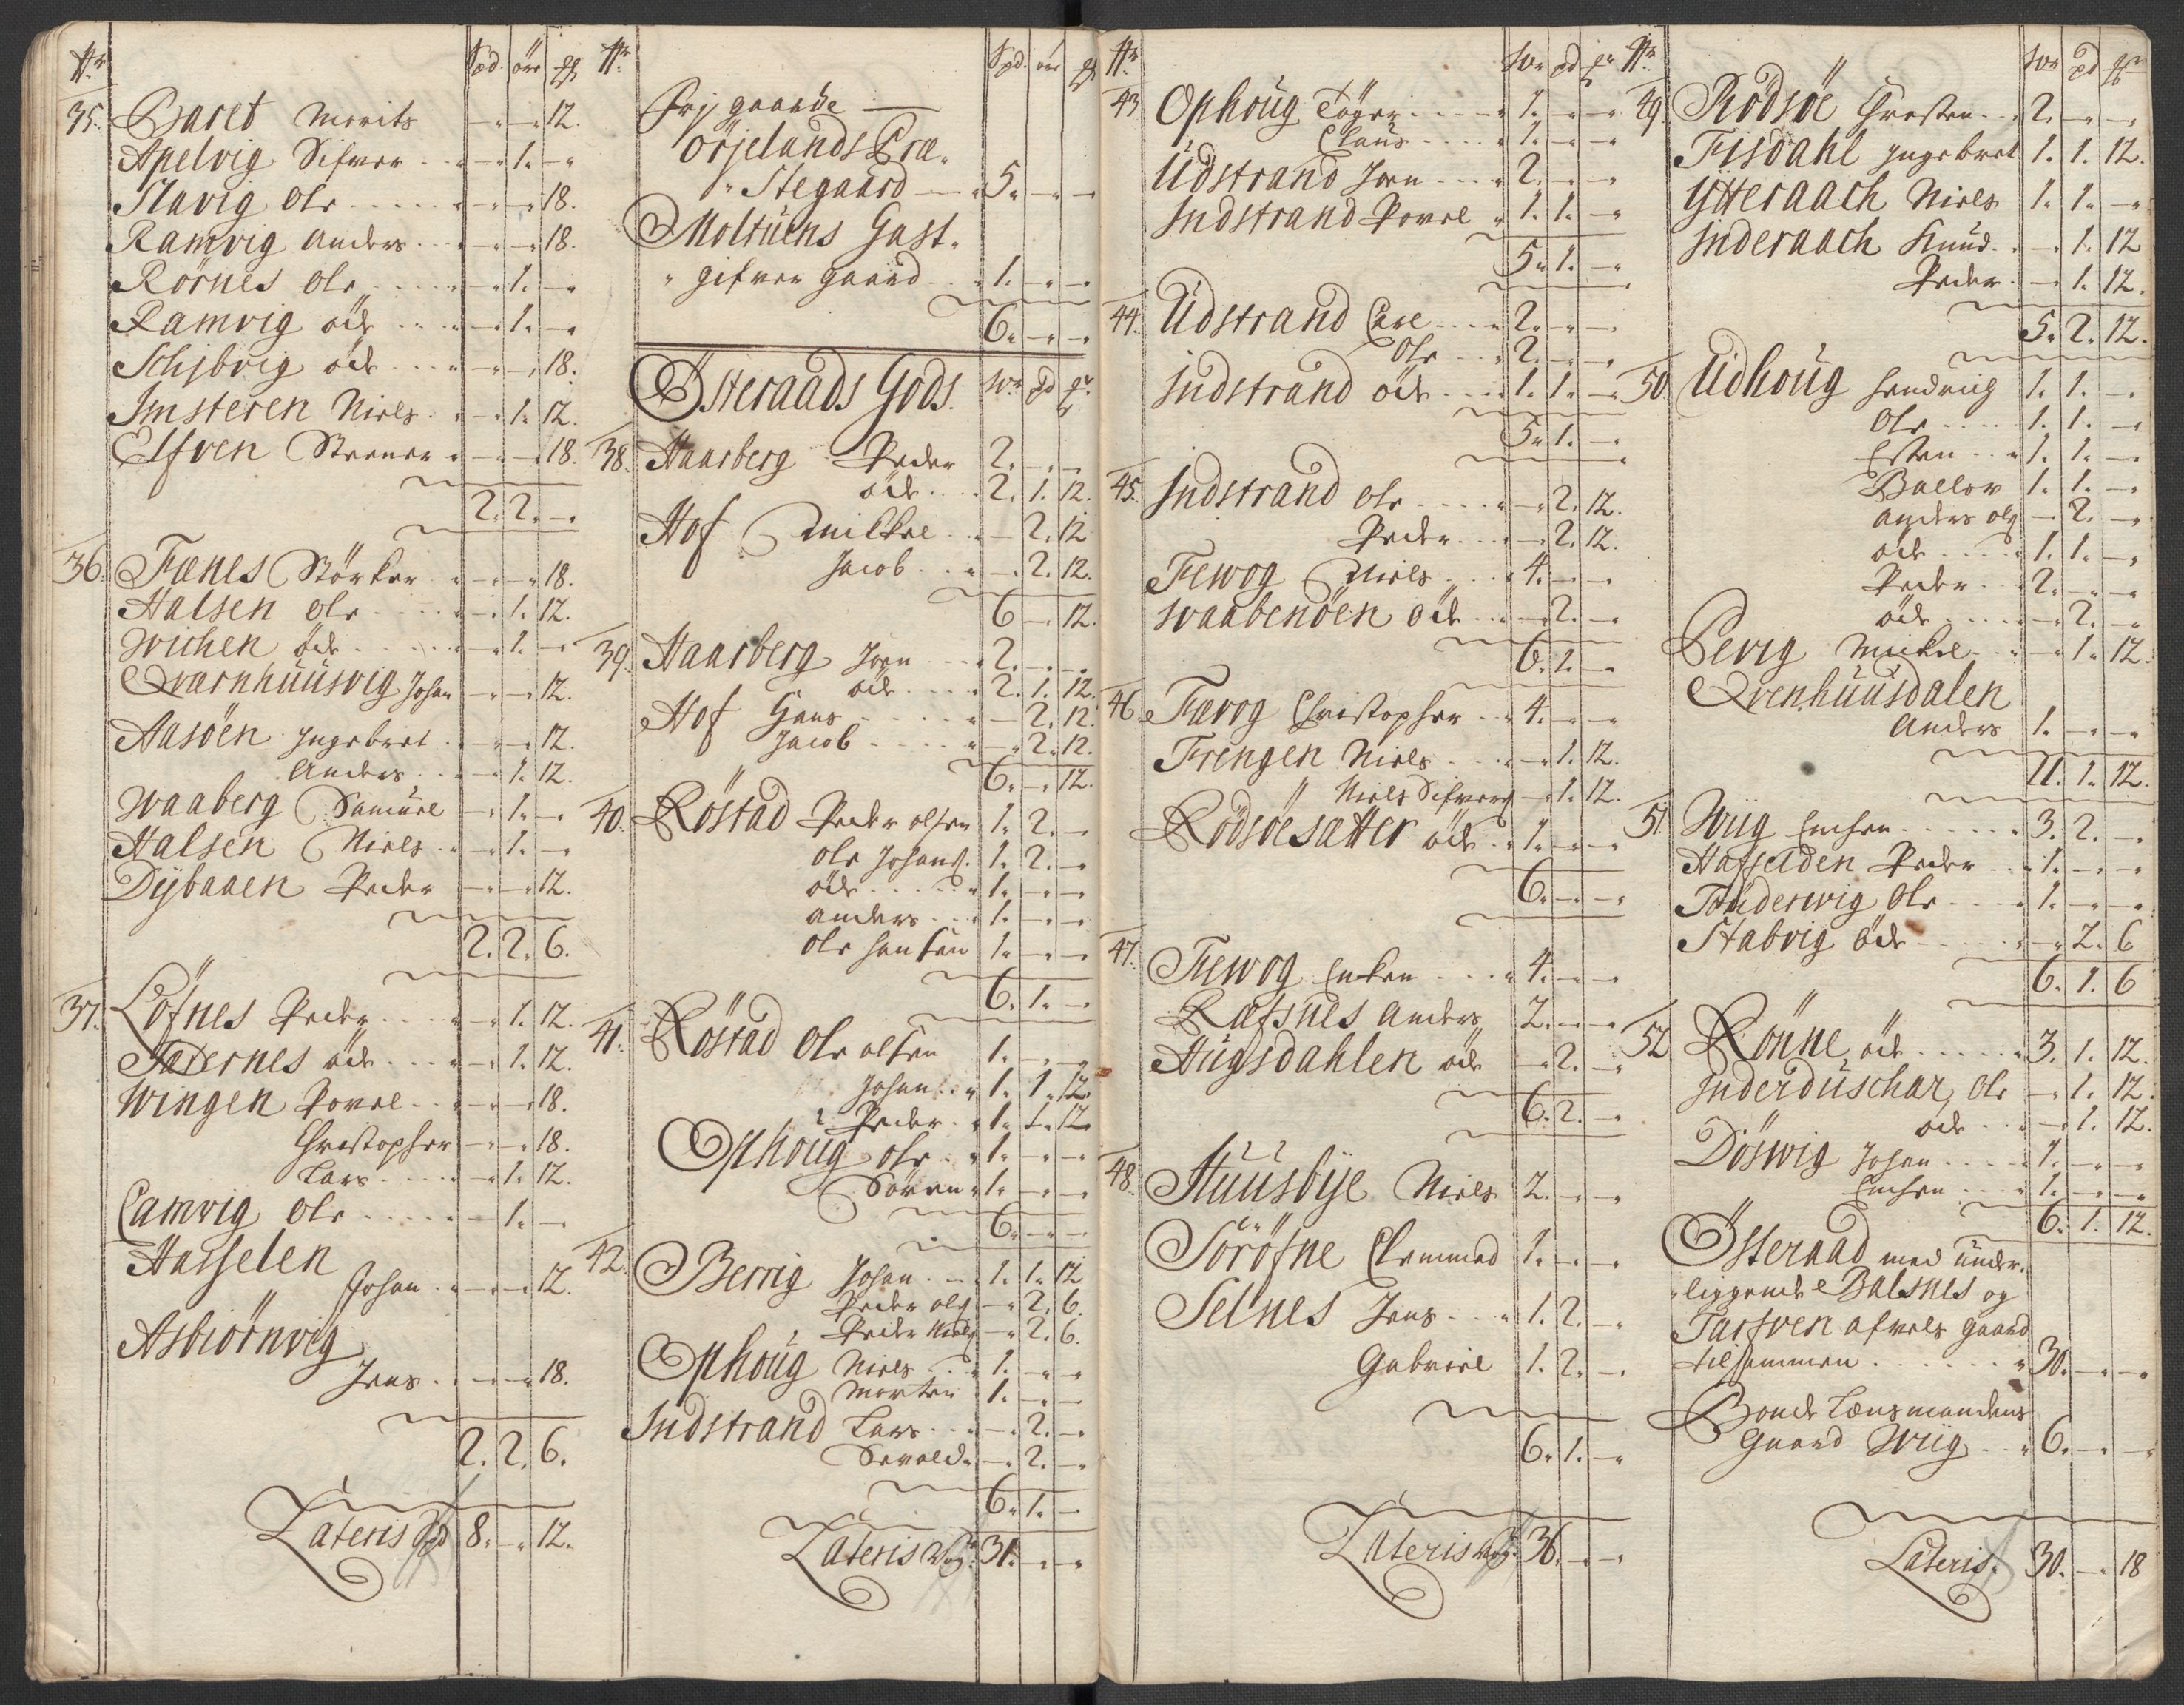 Nr. Spd. öre
35. Baret Morits - - 12.
Apelvig Sifver - 1. -
Slavig Ole - - 18.
Ramvig Anders - - 18.
Rörnes Ole - 1. -
Ramvig öde - 1. -
Schjbvig öde - - 18.
Imsteren Niels - 1. 12.
Elfven Steener - - 18.
2. 2. -
36. Fænes Störker - - 18.
Halsen Ole - 1. 12.
Wichen öde - 1. -
Qværnhuusvig Johan - - 12.
Aasöen Ingebret - - 12.
Anders - 1. 12.
Waaberg Samuel - 1. -
Halsen Niels - 1. -
Dybaaen Peder - - 12.
2. 2. 6.
37. Löfnes Peder - 1. 12.
Tædernes öde - 1. 12.
Wingen Povel - - 18.
Christopher - - 18.
Lars - 1. 12.
Camvig Ole - 1. -
Hasselen
Johan - - 12.
Asbiörnvig
Jens - - 18.
2. 2. 6.
Lateris Spd 8. - 12.
Nr. Spd. öre
Frij gaarde
Örjelands Præ-
Stegaard 5. - -
Moltuens Gast-
gifver gaard 1. - -
6. - -
Österaads Gods. Wo. pd
38. Haarberg Peder 2. - -
öde 2. 1. 12.
Hof Mikkel - 2. 12
Jacob - 2. 12.
6 - 12.
39. Haarberg Joen 2. - -
öde 2. 1. 12.
Hof Hans - 2. 12.
Jacob - 2. 12.
6. - 12.
40. Röstad Peder olsen 1. 2. -
Ole Johans. 1. 2. -
öde 1. - -
Anders 1. - -
Ole Hansen 1. - -
6. 1. -
41. Röstad Ole olsen 1. - -
Johan 1. 1. 12.
Peder 1. 1. 12.
Ophoug Ole 1. - -
Sören 1. - -
6. - -
42. Berrig Johan 1. 1. 12
Peder ols - 2. 6.
Peder Niels - 2. 6.
Ophoug Niels 1. - -
Morten 1. - -
Indstrand Lars - 2. -
Sevold - 2. -
6. 1. -
Lateris Wog: 31. - -
Nr. Wo pd
43 Ophoug Töger 1. - -
Claus 1. - -
Udstrand Joen 2. - -
Indstrand Povel 1. 1. -
5. 1. -
44. Udstrand Care 2. - -
Ole 2. - -
Indstrand öde 1. 1. -
5. 1. -
45. Indstrand Ole - 2. 12.
Peder - 2. 12.
Fewog Niels 4. - -
Waabenöen öde - 2. -
6. 1. -
46. Fævog Christopher 4. - -
Frengen Niels - 1. 12.
Niels Sifvers - 1. 12.
Rödsöesætter öde 1. - -
6. - -
47. Fewog Enken 4. - -
Ræfsnes Anders 2. - -
Hugsdahlen öde - 2. -
6. 2. -
48. Huusbye Niels 2. - -
Söröfne Clemmed 1. - -
Selnes Jens 1. 2. -
Gabriel 1. 2. -
6. 1. -
Lateris Wog: 36. - -
Nr. Wo pd
49. Rödsöe Christen 2. - -
Fisdahl Ingebret 1. 1. 12.
Ytteraach Niels 1. 1. -
Inderaach Knud - 1. 12
Peder - 1. 12.
5. 2. 12.
50. Udhoug Hendrich 1. 1. -
Ole 1. 1. -
Esten 1. 1. -
Ballor 1. 1. -
Anders ols - 2. -
öde 1. 1. -
Peder 2. - -
öde - 2. -
Pevig Mickel - 1. 12.
Qvenhuusdalen
Anders 1. - -
11. 1. 12.
51. Wiig Enchen 3. 2. -
Hasselden Peder 1. - -
Tønderwig Ole 1. - -
Stabvig öde - 2. 6
6. 1. 6
52 Rönne öde 3. 1. 12.
Inderduschar, Ole - 1. 12.
öde - 1. 12.
Döswig Johan 1. - -
Enchen 1. - -
6. 1. 12.
Österaad med under-
liggende Balsnes og
Tarfven afvels gaard
tilsammen 30. - -
Bonde Lænsmandens
Gaard Wiig 6. - -
Lateris: 30. - 18